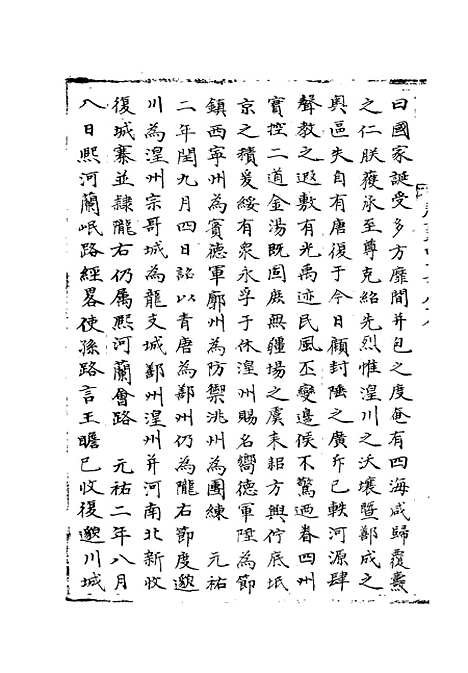 曰國家誕受多方靡間并包之度奄有四海咸歸覆燾
之仁朕葰承至尊克紹先烈惟湟川之沃壤暨鄯成之
奥區失自有唐復于今日顧封陲之廣斥已軼河源肆
聲教之遐敷有光禹迹民風丕變邊候不驚迺眷四州
實控二道金湯既固厥無疆埸之虞耒詔方輿佇底坻
京之積爰綏有衆永孚于休湟州賜名嚮德軍陞為節
鎮西寧州為賓德軍廓州為防禦洮州為團練　元祐
二年閏九月四日詔以青唐為鄯州仍為隴右節度邈
川為湟州宗哥城為龍支城鄯州湟州并河南北新收
復城寨並隸隴右仍属熙河蘭會路　元祐二年八月
八日熙河蘭岷路經畧使孫路言王瞻已收復邈川城